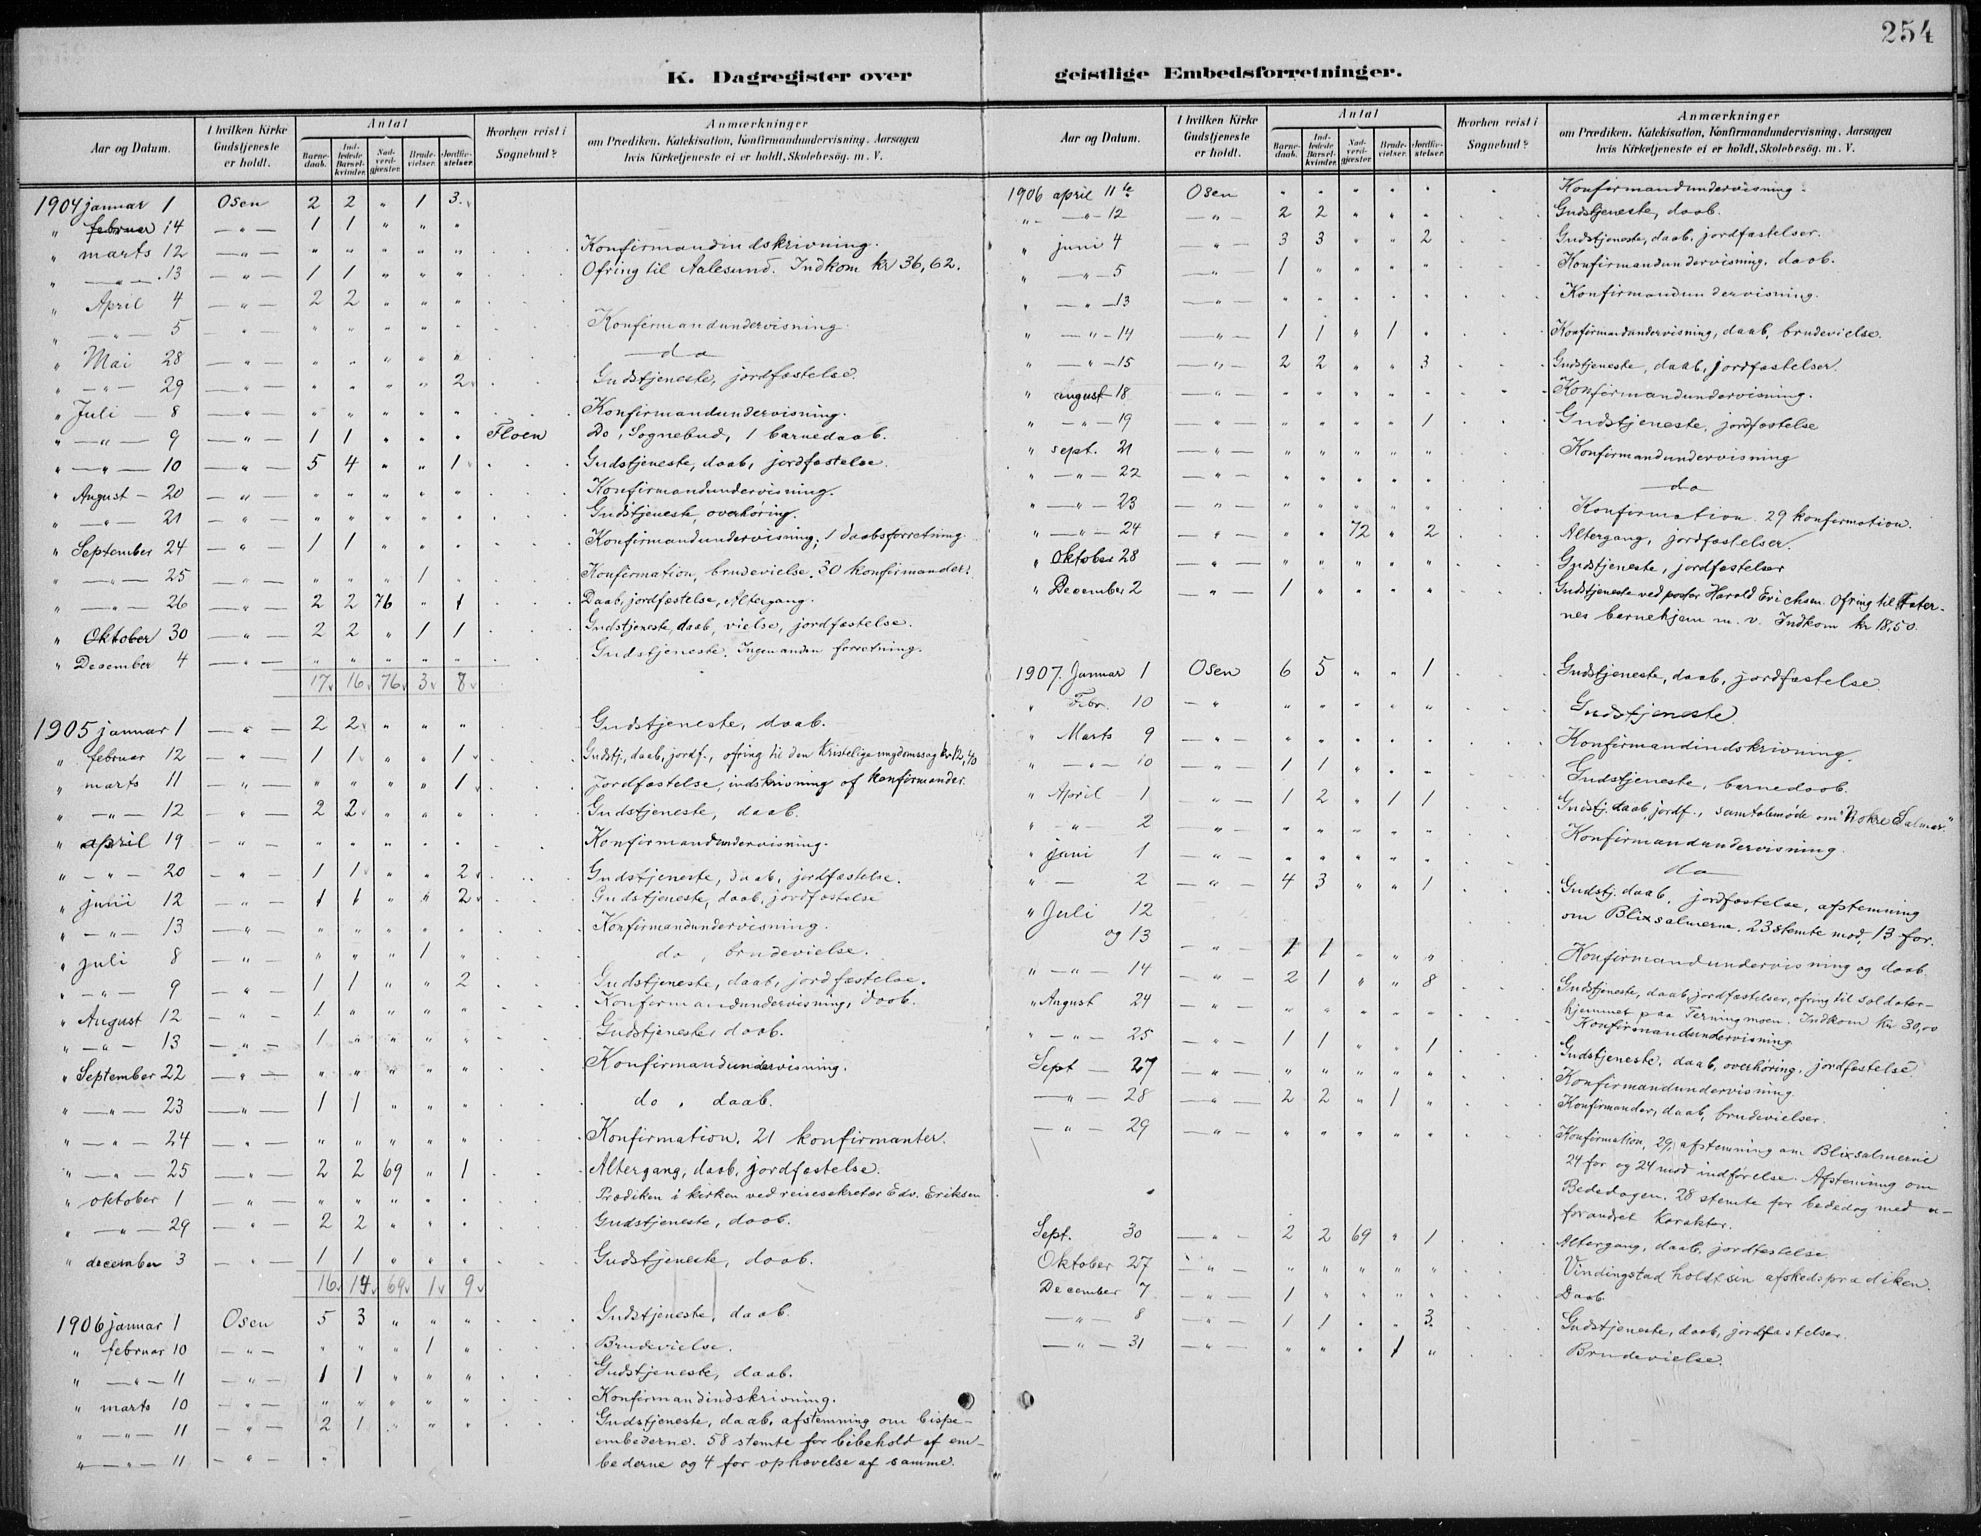 254
K. Dagregister over geistlige Embedsforretninger.
Aar og Datum. I hvilken Kirke Gudstjeneste er holdt. Antal Barnedaab. Indledede Barselkvinder. Nadverdgjæster. Brudevielser. Jordfæstelser. Hvorhen reist i Sognebud? Anmærkninger om Prædiken, Katekisation, Konfirmandundervisning, Aarsagen hvis Kirketjeneste ei er holdt, Skolebesøg, m. V.
1904 januar 1 Osen 2 2 „ 1 3
„ februar 14 — „ — 1 1 „ „ „
„ marts 12 — „ — „ „ „ „ „ Konfirmandindskrivning.
„ — „ — 13 — „ — 1 1 „ „ „ Ofring til Aalesund. Indkom kr 36,62.
„ April 4 — „ — 2 2 „ „ „
„ — „ — 5 — „ — „ „ „ „ „ Konfirmandundervisning
„ Mai 28 — „ — „ „ „ „ „ do
„ — „ — 29 — „ — „ „ „ „ 2 Gudstjeneste, jordfæstelse.
„ Juli — 8 — „ — „ „ „ „ „ Konfirmandundervisning.
„ — „ — 9 — „ — 1 1 „ „ „ Floen Do, Sognebud, 1 barnedaab.
„ — „ — 10 — „ — 5 4 „ „ 1 Gudstjeneste, daab, jordfæstelse.
„ August — 20 — „ — „ „ „ „ „ Konfirmandundervisning.
„ — „ — 21 — „ — „ „ „ „ „ Gudstjeneste, overhøring.
„ September 24 — „ — 1 1 „ „ „ Konfirmandundervisning, 1 daabsforretning.
„ — „ — 25 — „ — „ „ „ 1 „ Konfirmation, brudevielse. 30 konfirmander.
„ — „ — 26 — „ — 2 2 76 „ 1 Daab, jordfæstelse, Altergang.
„ Oktober 30 — „ — 2 2 „ 1 1 Gudstjeneste, daab, vielse, jordfæstelse.
„ Desember 4 — „ — „ „ „ „ „ Gudstjeneste. Ingen anden forretning.
17 16 76 3 8
1905 januar 1 — „ — 2 2 „ „ „ Gudstjeneste, daab.
„ februar 12 — „ — 1 1 „ „ 1 Gudstj., daab, jordf., ofring til den Kristelige ungdomssag kr 12,40
„ marts 11 — „ — „ „ „ „ 1 Jordfæstelse, indskrivning af Konfirmander.
„ — „ — 12 — „ — 2 2 „ „ „ Gudstjeneste, daab.
„ april 19 — „ — „ „ „ „ „ Konfirmandundervisning.
„ — „ — 20 — „ — 1 1 „ „ 2 Gudstjeneste, daab, jordfæstelse.
„ juni 12 — „ — 1 1 „ „ 2 Gudstjeneste, daab, jordfæstelse
„ — „ — 13 — „ — „ „ „ „ „ Konfirmandundervisning.
„ juli 8 — „ — „ „ „ 1 „ do, brudevielse.
„ — „ — 9 — „ — 1 1 „ „ 2 Gudstjeneste, daab, jordfæstelse.
„ August 12 — „ — 1 „ „ „ „ Konfirmandundervisning, daab.
„ — „ — 13 — „ — 1 „ „ „ „ Gudstjeneste, daab.
„ September 22 — „ — „ „ „ „ „ Konfirmandundervisning.
„ — „ — 23 — „ — 1 1 „ „ „ do, daab.
„ — „ — 24 — „ — „ „ „ „ „ Konfirmation. 21 konfirmanter.
„ — „ — 25 — „ — 2 2 69 „ 1 Altergang, daab, jordfæstelse.
„ oktober 1 — „ — „ „ „ „ „ Prædiken i kirken ved reisesekretær Edv. Eriksen
„ — „ — 29 — „ — 2 2 „ „ „ Gudstjeneste, daab.
„ december 3 — „ — 1 1 „ „ „ Gudstjeneste, daab.
16 14 69 1 9
1906 januar 1 Osen 5 3 „ „ „ Gudstjeneste, daab.
„ februar 10 — „ — „ „ „ 1 „ Brudevielse.
„ — „ — 11 — „ — 1 1 „ „ „ Gudstjeneste, daab.
„ marts 10 — „ — „ „ „ „ „ Konfirmandindskrivning.
„ — „ — 11 — „ — 2 1 „ „ „ Gudstjeneste, daab, afstemning om bispe-
embederne. 58 stemte for bibehold af em-
„ — „ — 11 — „ — „ bederne og 4 for ophævelse af samme.
Aar og Datum. I hvilken Kirke Gudstjeneste er holdt. Antal Barnedaab. Indledede Barselkvinder. Nadverdgjæster. Brudevielser. Jordfæstelser. Hvorhen reist i Sognebud? Anmærkninger om Prædiken, Katekisation, Konfirmandundervisning, Aarsagen hvis Kirketjeneste ei er holdt, Skolebesøg, m. V.
1906 april 11te Osen „ „ „ „ „ Konfirmandundervisning.
„ — „ — 12 — „ — 2 2 „ „ „ Gudstjeneste, daab.
„ juni 4 — „ — 3 3 „ „ 2 Gudstjeneste, daab, jordfæstelser.
„ — „ — 5 — „ — 1 „ „ „ „ Konfirmandundervisning, daab.
„ — „ — 13 — „ — „ „ „ „ „ Konfirmandundervisning.
„ — „ — 14 — „ — 1 1 „ 1 „ Konfirmandundervisning, daab, brudevielse.
„ — „ — 15 — „ — 2 2 „ „ 3 Gudstjeneste, daab, jordfæstelser.
„ august 18 — „ — „ „ „ „ „ Konfirmandundervisning.
„ — „ — 19 — „ — „ „ „ „ 1 Gudstjeneste, jordfæstelse
„ sept. 21 — „ — „ „ „ „ „ Konfirmandundervisning
„ — „ — 22 — „ — „ „ „ „ „ do
„ — „ — 23 — „ — „ „ „ „ „ Konfirmation. 29 konfirmation.
„ — „ — 24 — „ — „ „ 72 „ 2 Altergang, jordfæstelser.
„ Oktober 28 — „ — „ „ „ „ „ Gudstjeneste, jordfæstelser
„ December 2 — „ — 1 „ „ „ „ Gudstjeneste ved pastor Harold Erichsen. Ofring til Fater-
nes barnehjem m. v. Indkom kr 18,50.
1907. Januar 1 Osen 6 5 „ „ 1 Gudstjeneste, daab, jordfæstelse.
„ Febr. 10 — „ „ „ „ „ „ Gudstjeneste.
„ Marts 9 — „ — „ „ „ „ „ Konfirmandindskrivning.
„ — „ — 10 — „ — 1 1 „ „ „ Gudstjeneste, barnedaab.
„ April — 1 — „ — 1 2 „ 1 1 Gudstj. daab, jordf., samtalemøde om "Nokre Salmar."
„ — „ — 2 — „ — „ „ „ „ „ Konfirmandundervisning.
„ juni 1 — „ — „ „ „ „ „ do
„ — 2 — „ — 4 3 „ „ 1 Gudstj. daab, jordfæstelse, afstemning
om Blixsalmerne. 23 stemte mod, 13 for.
„ Juli 12
og 13 — „ — 1 1 „ „ „ Konfirmandundervisning og daab.
„ — „ — 14 — „ — 2 1 „ „ 8 Gudstjeneste, daab, jordfæstelser, ofring til soldater-
hjemmet paa Terningmoen. Indkom kr. 30,00
„ August 24 — „ — „ „ „ „ „ Konfirmandundervisning
„ — „ — 25 — „ — 1 1 „ „ 1 Gudstjeneste, daab, overhøring, jordfæstelse.
Sept — 27 — „ — „ „ „ „ „ Konfirmandundervisning
— „ — 28 — „ — 2 2 „ 1 „ Konfirmander, daab, brudevielser.
— „ — 29 — „ — „ „ „ „ „ Konfirmation, 29, afstemning om Blixsalmerne
24 for og 24 mod indførelse. Afstemning om
Bededagen. 28 stemte for bededag med u-
forandret karakter.
Sept. 30 — „ — 2 2 69 „ 1 Altergang, daab, jordfæstelse
Oktober 27 — „ — „ „ „ „ „ Vindingstad holdt sin afskedsprædiken.
December 7 — „ — 1 „ „ „ „ Daab.
— „ — 8 — „ — 1 1 „ „ 3 Gudstjeneste, daab, jordfæstelser.
— „ — 31 — „ — „ „ „ 1 „ Brudevielse.